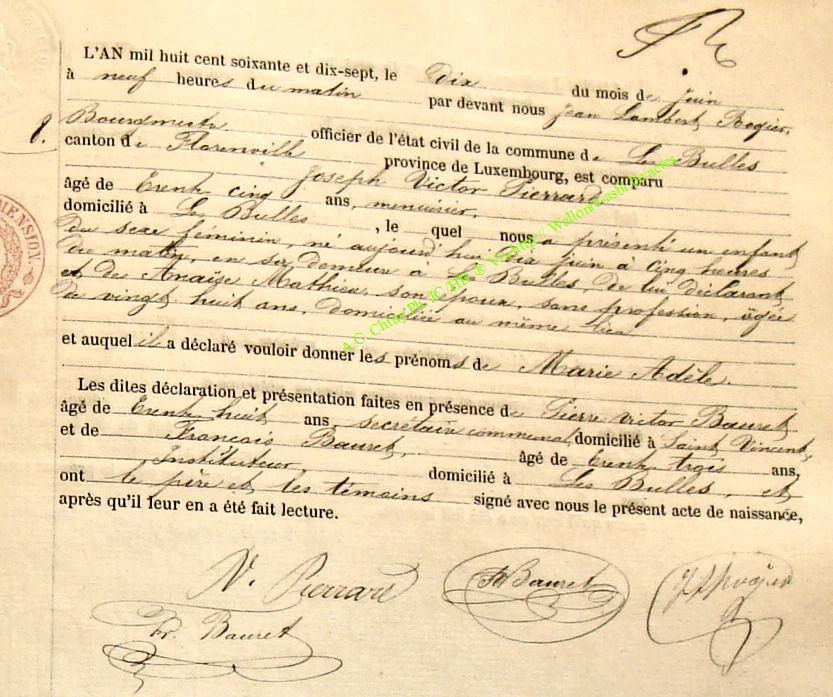 L'AN mil huit cent soixante et dix-sept, le Dix du mois de Juin
à neuf heures du matin par devant nous Jean Lambert Rogier,
8.
Bourgmestre officier de l'état civil de la commune de Les Bulles
canton de Florenville province de Luxembourg, est comparu
Joseph Victor Pierrard
âgé de trente cinq ans, menuisier,
domicilié à Les Bulles, le quel nous a présenté un enfant
du sexe féminin, né aujourd'hui dix juin à cinq heures
du matin, en sa demeure à Les Bulles, de lui déclarant
et de Anaïse Mathieu son épouse, sans profession, âgée
de vingt huit ans, domiciliée au même lieu
et auquel il a déclaré vouloir donner les prénoms de Marie Adèle.
Les dites déclaration et présentation faites en présence de Pierre Victor Bauret
âgé de trente huit ans, secrétaire communal, domicilié à Saint Vincent,
et de François Bauret, âgé de trente trois ans,
Instituteur, domicilié à Les Bulles, et
ont le père et les témoins signé avec nous le présent acte de naissance,
après qu'il leur en a été fait lecture.
V. Pierrard Bauret
Fr. Bauret
DIMENSION